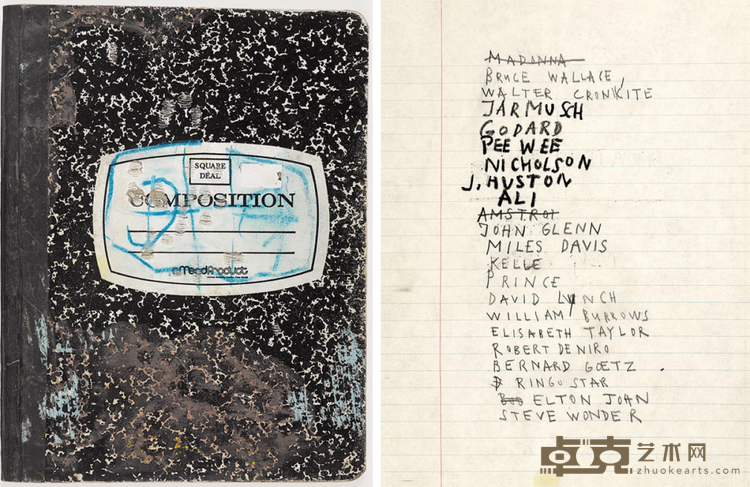 SQUARE
DEAL
COMPOSITION
MeadProduct
MADONNA
BRUCE WALLACE,
WALTER CRONKITE
JARMUSCH
GODARD
PEE WEE
NICHOLSON
J. HUSTON
ALI
AMSTROI
JOHN GLENN
MILES DAVIS
KELLE
PRINCE
DAVID LYNCH
WILLIAM BURROWS
ELISABETH TAYLOR
ROBERT DENIRO
BERNARD GOETZ .
RINGO STAR
ELTON JOHN
STEVE WONDER
卓克艺术网
zhuokearts.com